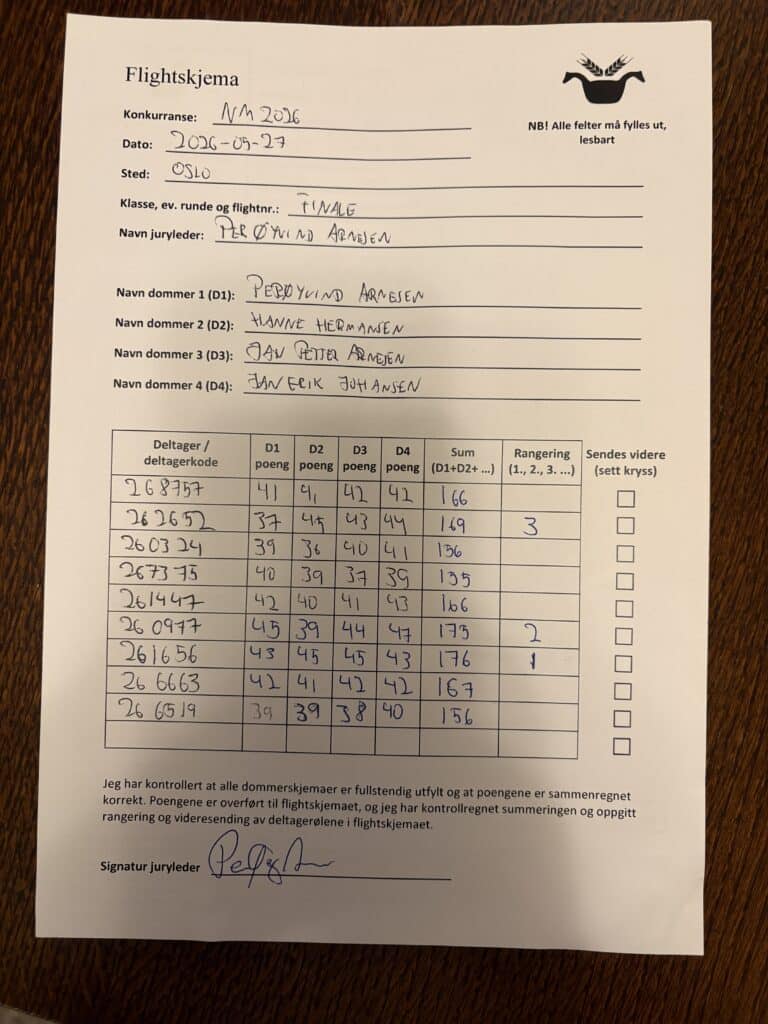 Flightskjema
NB! Alle felter må fylles ut,
lesbart
Konkurranse: NM 2026
Dato: 2026-05-27
Sted: OSLO
Klasse, ev. runde og flightnr.: FINALE
Navn juryleder: PER ØYVIND ARNESEN
Navn dommer 1 (D1): PER ØYVIND ARNESEN
Navn dommer 2 (D2): HANNE HERMANSEN
Navn dommer 3 (D3): JAN PETTER ARNESEN
Navn dommer 4 (D4): JAN ERIK JOHANSEN
Deltager / deltagerkode D1 poeng D2 poeng D3 poeng D4 poeng Sum (D1+D2+ ...) Rangering (1., 2., 3. ...) Sendes videre (sett kryss)
268757 41 41 42 42 166
262652 37 45 43 44 169 3
260324 39 36 40 41 156
267375 40 39 37 39 155
261447 42 40 41 43 166
260977 45 39 44 47 175 2
261656 43 45 45 43 176 1
266663 42 41 42 42 167
266519 39 39 38 40 156
Jeg har kontrollert at alle dommerskjemaer er fullstendig utfylt og at poengene er sammenregnet
korrekt. Poengene er overført til flightskjemaet, og jeg har kontrollregnet summeringen og oppgitt
rangering og videresending av deltagerølene i flightskjemaet.
Signatur juryleder